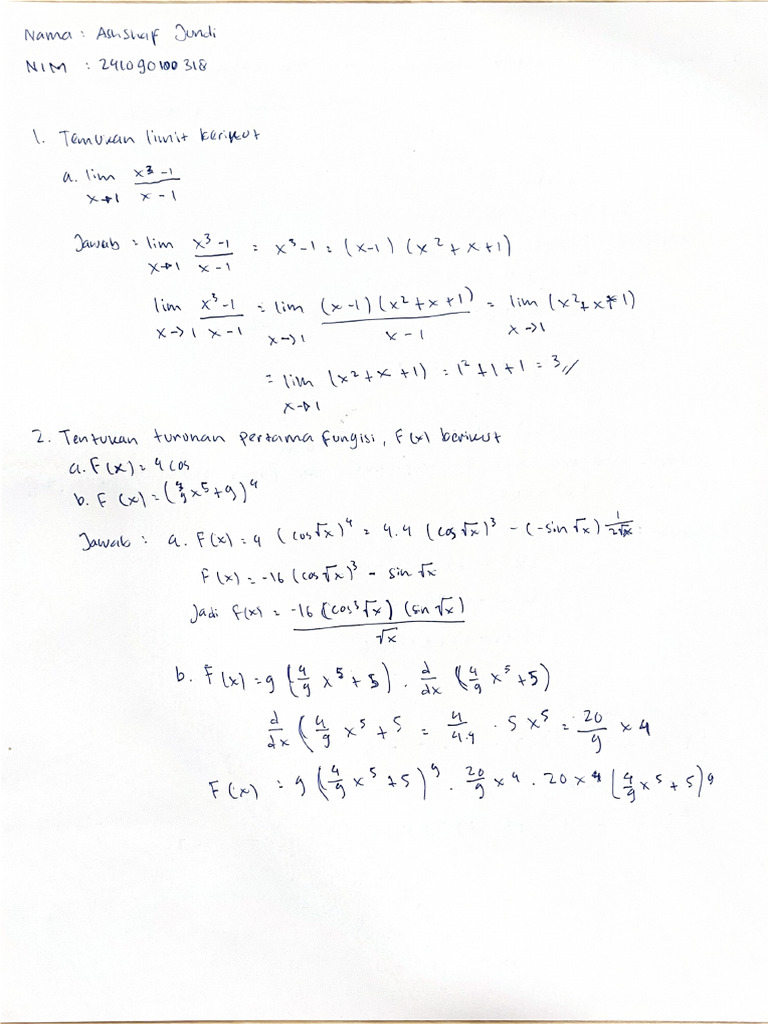 Nama : Ashshaf Jundi
NIM : 241090100318
1. Temukan limit berikut
a. lim x→1 (x³-1)/(x-1)
Jawab = lim x→1 (x³-1)/(x-1) = x³-1 = (x-1) (x²+x+1)
lim x→1 (x³-1)/(x-1) = lim x→1 ((x-1)(x²+x+1))/(x-1) = lim x→1 (x²+x+1)
= lim x→1 (x²+x+1) = 1²+1+1 = 3//
2. Tentukan turunan pertama fungisi, F(x) berikut
a. F(x) = 4 cos
b. F(x) = (4/9 x⁵+9)⁴
Jawab : a. F(x) = 4 (cos√x)⁴ = 4.4 (cos√x)³ - (-sin√x) 1/(2√x)
F(x) = -16 (cos√x)³ - sin √x
Jadi F(x) = (-16 (cos³√x) (sin √x))/√x
b. F(x) = 9 (4/9 x⁵+5) . d/dx (4/9 x⁵+5)
d/dx (4/9 x⁵+5 = 4/4.9 . 5x⁵ = 20/9 x4
F(x) = 9 (4/9 x⁵+5)⁹ . 20/9 x4 . 20x4 (4/9 x⁵+5)⁹